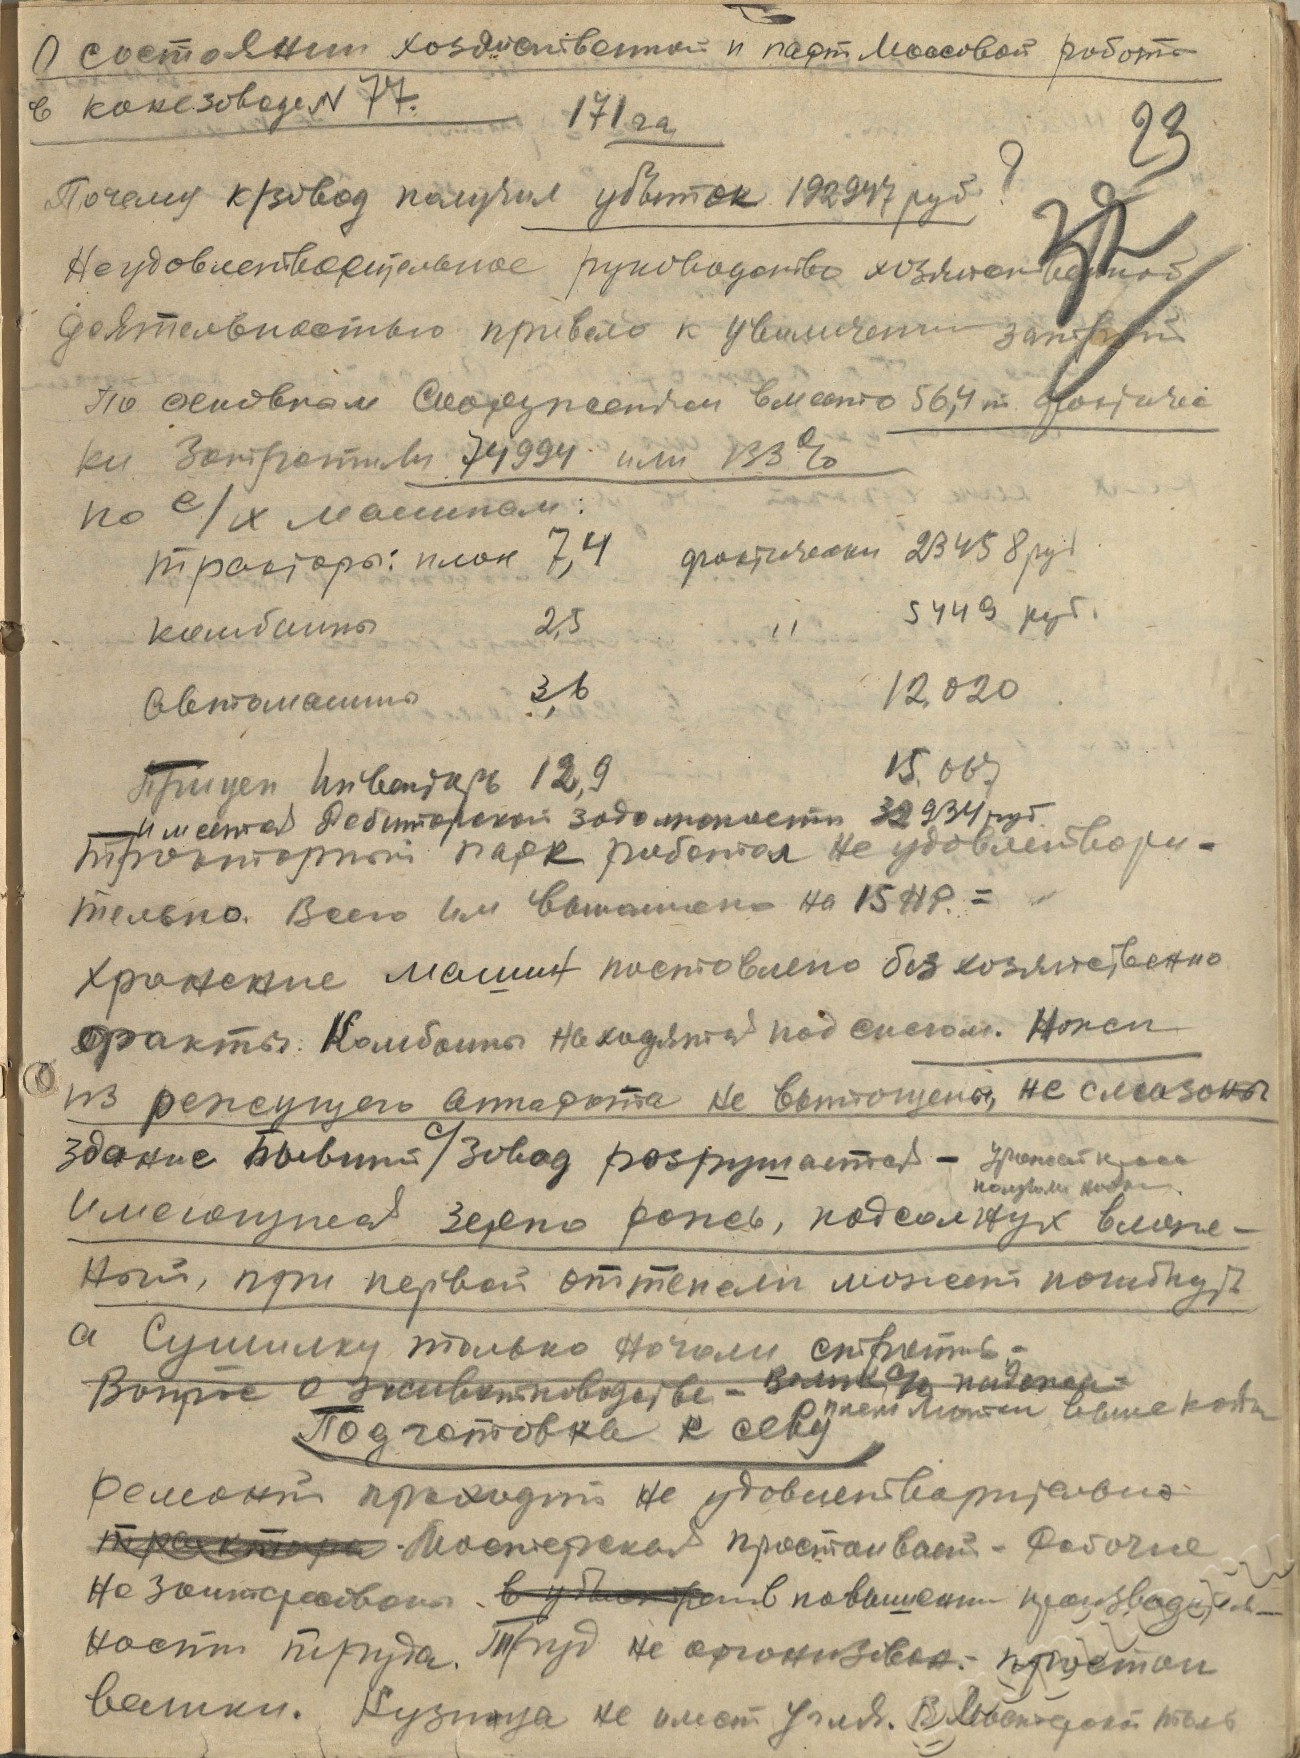 О состоянии хозяйственной и парт массовой работы
в конезаводе N 77.
171 га
23
Почему к/завод получил убыток 192947 руб?
Неудовлетворительное руководство хозяйственной
деятельностью привело к увеличению затрат
По основным сооружениям вместо 56,4 т. фактичес
ки затратили 74994 или 133%
по с/х машинам:
тракторы: план 7,4 фактически 23458 руб
комбайны 2,5 " 5449 руб.
Автомашины 3,6 12.020
Прицеп инвентарь 12,9 15.067
имеется дебиторской задолжности 32934 руб
Тракторный парк работал не удовлетвори-
тельно. Всего им вспахано на 15 HP. =
хранение машин поставлено безхозяйственно
факты: Комбайны находятся под снегом. Ножи
из режущего аппарата не вытощены, не смазаны
здание бывший с/завод разрушается - 
Имеющуяся зерно рожь, подсолнух влаж-
ный, при первой оттепели может погибнуть
а Сушилку только начали строить-
Вопрос о животноводстве - Велик % падежа-
Подготовка к севу
Ремонт проходит не удовлетварительно
трактора - Мастерская простаивает - Рабочие
не заинтересованы в повышении производитель-
ности труда. Труд не организован. - простои
велики. Кузница не имеет угля. В Мастерской